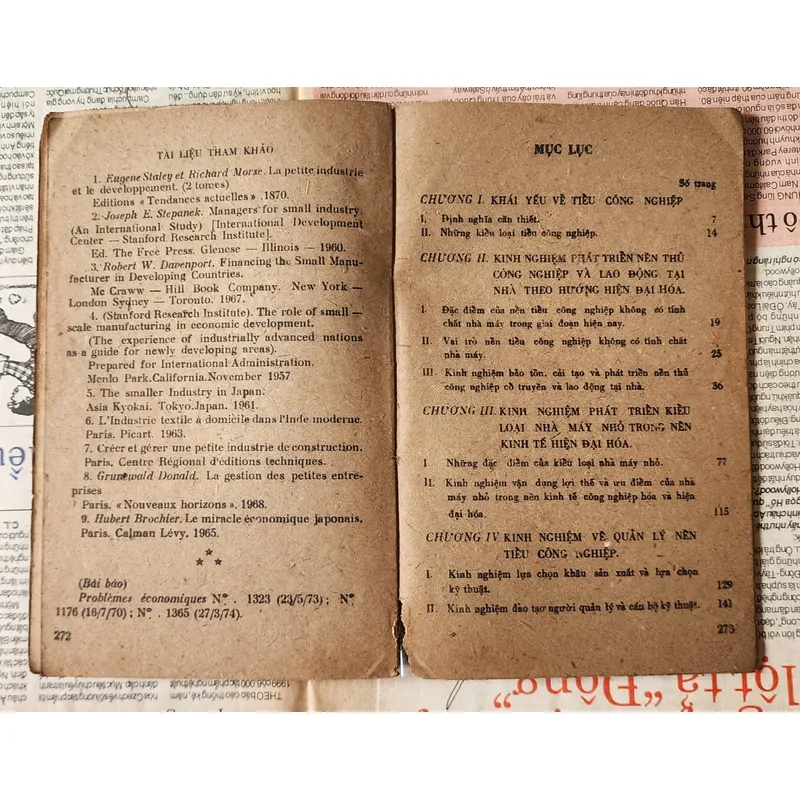 TÀI LIỆU THAM KHẢO
1. Eugene Staley et Richard Morse. La petite industrie
et le développement. (2 tomes)
Editions « Tendances actuelles » .1870.
2. Joseph E. Stepanek. Managers for small industry.
(An International Study) [International Development
Center — Stanford Research Institute].
Ed. The Free Press. Glenese — Illinois — 1960.
3. Robert W. Davenport. Financing the Small Manu-
facturer in Developing Countries.
Mc Craww — Hill Book Company. New York —
London Sydney — Toronto. 1967.
4. (Stanford Research Institute). The role of small —
scale manufacturing in economic development.
(The experience of industrially advanced nations
as a guide for newly developing areas).
Prepared for International Administration.
Menlo Park.California.November 1957.
5. The smaller Industry in Japan.
Asia Kyokai. Tokyo.Japan. 1961.
6. L'Industrie textile à domicile dans l'Inde moderne.
Paris. Picart. 1963.
7. Créer et gérer une petite industrie de construction.
Paris, Centre Régional d'éditions techniques.
8. Grunewald Donald. La gestion des petites entre-
prises
Paris. « Nouveaux horizons ». 1968.
9. Hubert Brochier. Le miracle économique japonais.
Paris. Calman Lévy. 1965.
(Bài báo)
Problèmes économiques Nº . 1323 (23/5/73) ; Nº .
1176 (16/7/70) ; Nº . 1365 (27/3/74).
272
MỤC LỤC
Số trang
CHƯƠNG I. KHÁI YẾU VỀ TIỂU CÔNG NGHIỆP
I. Định nghĩa cần thiết. 7
II. Những kiểu loại tiểu công nghiệp. 14
CHƯƠNG II. KINH NGHIỆM PHÁT TRIỂN NỀN THỦ
CÔNG NGHIỆP VÀ LAO ĐỘNG TẠI
NHÀ THEO HƯỚNG HIỆN ĐẠI HÓA.
I. Đặc điểm của nền tiểu công nghiệp không có tính
chất nhà máy trong giai đoạn hiện nay. 19
II. Vai trò nền tiểu công nghiệp không có tính chất
nhà máy. 25
III. Kinh nghiệm bảo tồn, cải tạo và phát triển nền thủ
công nghiệp cổ truyền và lao động tại nhà. 36
CHƯƠNG III. KINH NGHIỆM PHÁT TRIỂN KIỂU
LOẠI NHÀ MÁY NHỎ TRONG NỀN
KINH TẾ HIỆN ĐẠI HÓA.
I Những đặc điểm của kiểu loại nhà máy nhỏ. 77
II. Kinh nghiệm vận dụng lợi thế và ưu điểm của nhà
máy nhỏ trong nền kinh tế công nghiệp hóa và hiện
đại hóa. 115
CHƯƠNG IV. KINH NGHIỆM VỀ QUẢN LÝ NỀN
TIỂU CÔNG NGHIỆP.
I. Kinh nghiệm lựa chọn khâu sản xuất và lựa chọn
kỹ thuật. 129
II. Kinh nghiệm đào tạo người quản lý và cán bộ kỹ thuật. 141
273